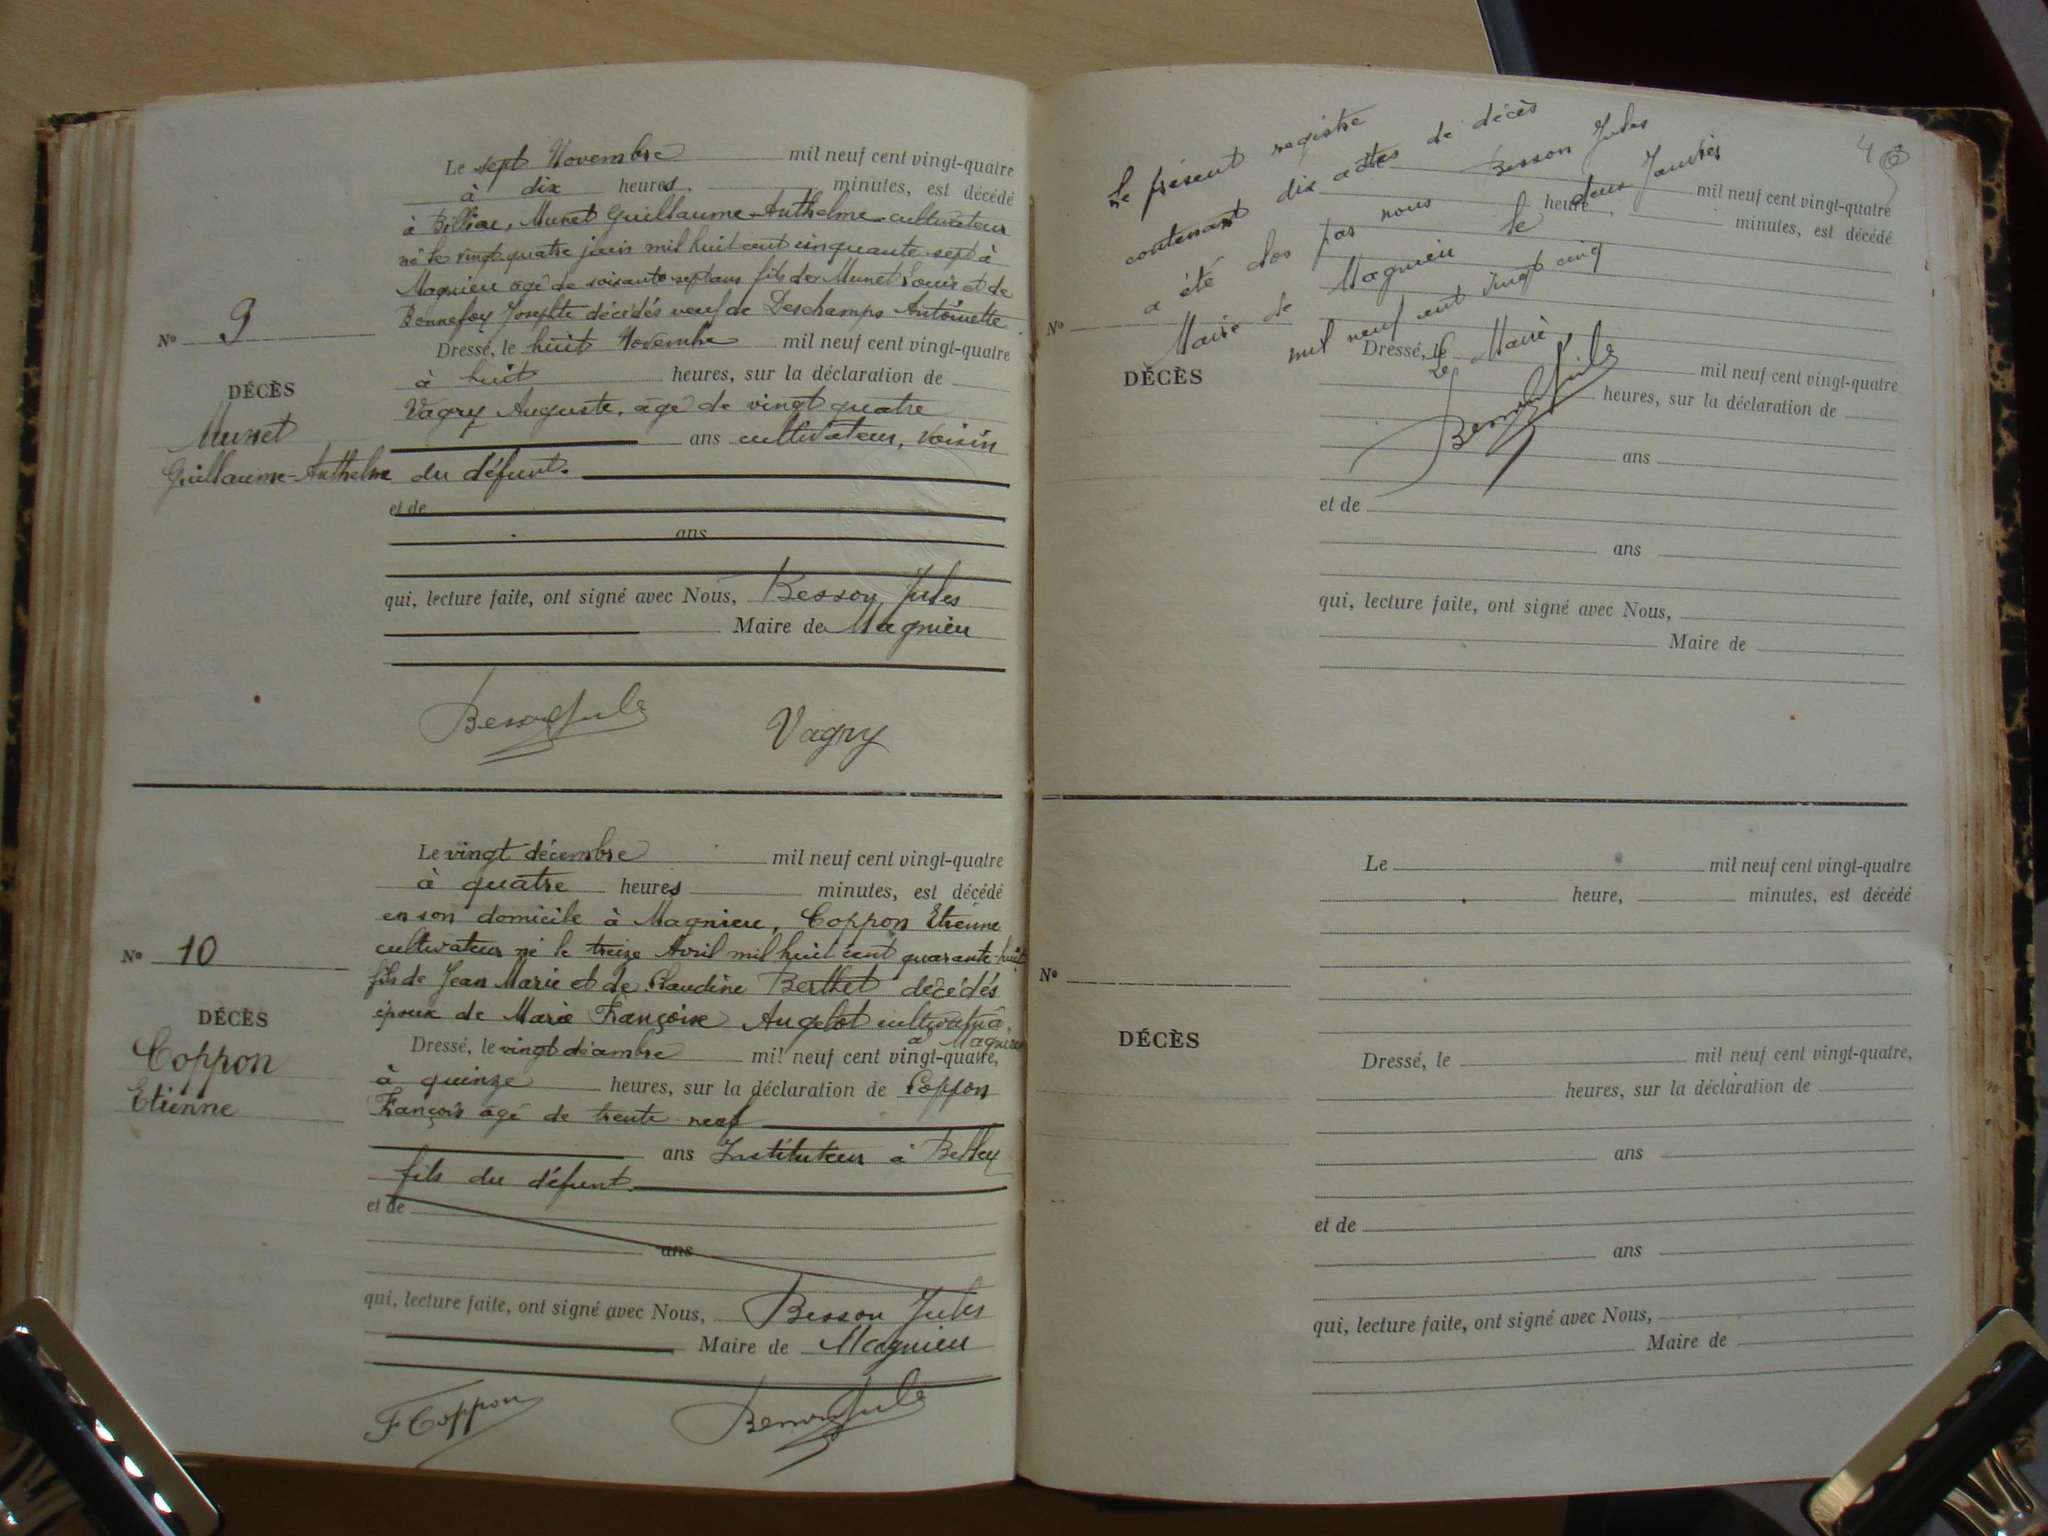 Le sept Novembre mil neuf cent vingt-quatre
à dix heures, minutes, est décédé
à Billieu, Munet Guillaume-Anthelme cultivateur
né le vingt quatre juin mil huit cent cinquante sept à
Magnieu agé de soixante sept ans fils de Munet Louis et de
Bonnefoy Josephte décédés veuf de Deschamps Antoinette
No 9
Dressé, le huit Novembre mil neuf cent vingt-quatre
à huit heures, sur la déclaration de
DÉCÈS
Vagry Auguste, agé de vingt quatre
Munet
ans cultivateur, voisin
Guillaume-Anthelme
du défunt.
et de
ans
qui, lecture faite, ont signé avec Nous, Besson Jules
Maire de Magnieu
Besson Jules Vagry
Le vingt décembre mil neuf cent vingt-quatre
à quatre heures minutes, est décédé
en son domicile à Magnieu, Coppon Etienne
cultivateur né le treize Avril mil huit cent quarante-huit
No 10
fils de Jean Marie et de Claudine Berthet décédés
époux de Marie Françoise Angelot
à Magnieu
DÉCÈS
Dressé, le vingt décembre mil neuf cent vingt-quatre,
Coppon
à quinze heures, sur la déclaration de Coppon
Etienne
François agé de trente neuf
ans Instituteur à Belley
fils du défunt.
et de
ans
qui, lecture faite, ont signé avec Nous, Besson Jules
Maire de Magnieu
F Coppon Besson Jules
4
Le présent registre
contenant dix actes de décès
a été clos par nous Besson Jules
Maire de Magnieu le deux Janvier
mil neuf cent vingt cinq
Le Maire
Besson Jules
mil neuf cent vingt-quatre
heure, minutes, est décédé
No
Dressé, le mil neuf cent vingt-quatre
DÉCÈS
heures, sur la déclaration de
ans
et de
ans
qui, lecture faite, ont signé avec Nous,
Maire de
Le mil neuf cent vingt-quatre
heure, minutes, est décédé
No
DÉCÈS
Dressé, le mil neuf cent vingt-quatre,
heures, sur la déclaration de
ans
et de
ans
qui, lecture faite, ont signé avec Nous,
Maire de